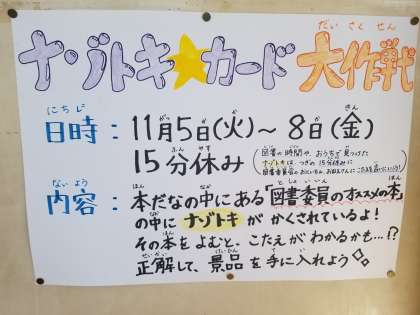 ナゾトキ★カード 大作戦
日時：11月5日(火)～8日(金)
15分休み
(図書の時間や、おうちで見つけた
ナゾトキは、つぎの15分休みに
内容：本だなの中にある「図書委員のオススメの本」
の中にナゾトキがかくされているよ！
その本をよむと、こたえがわかるかも…!?
正解して、景品を手に入れよう